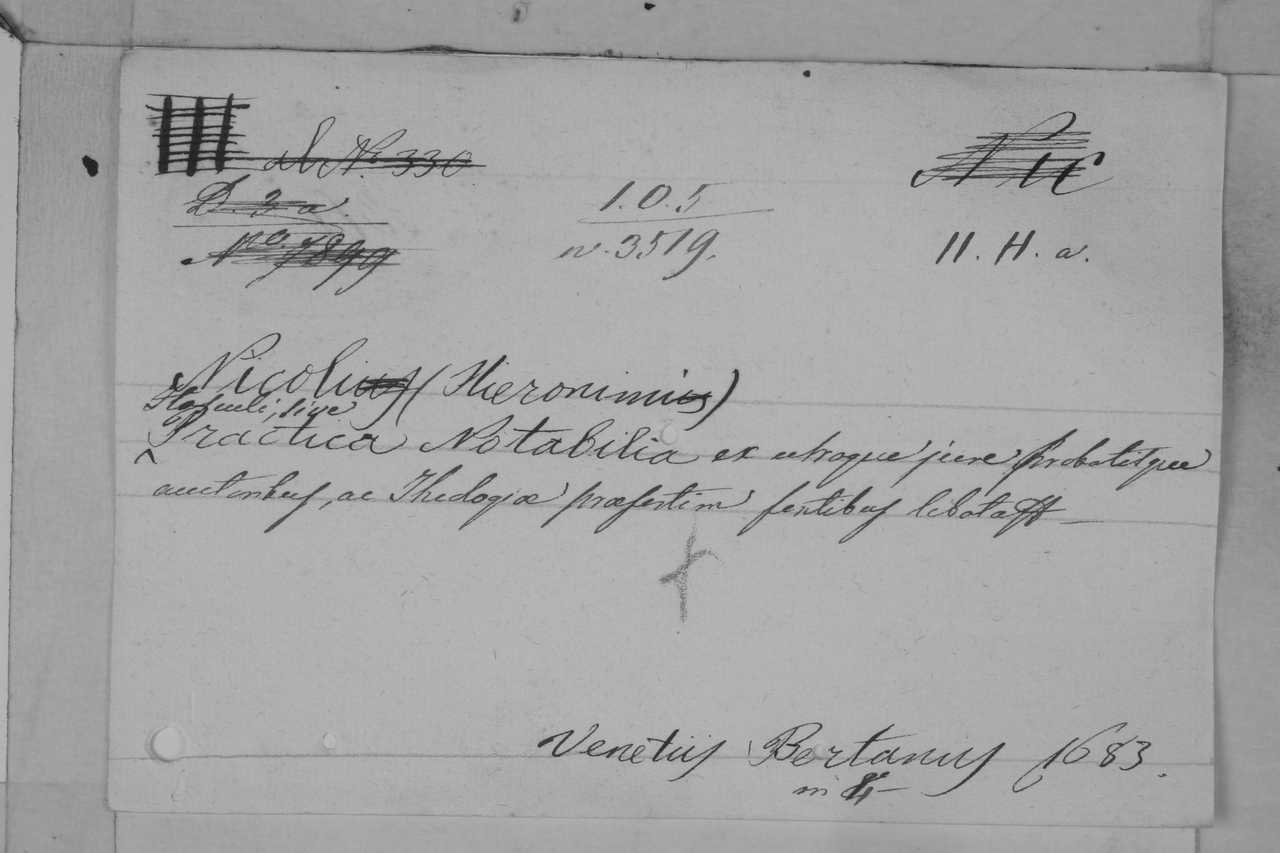 al No. 330
D. 3 a.
No. 7899
1.0.5
n. 3519.
N IC
11. H. a.
Nicolius (Hieronimius)
Flosculi, sive
Practica Notabilia ex utroque jure probatisque
auctoribus, ac Theologiæ præsertim fontibus libata
Venetiis Bertanus 1683.
in 4